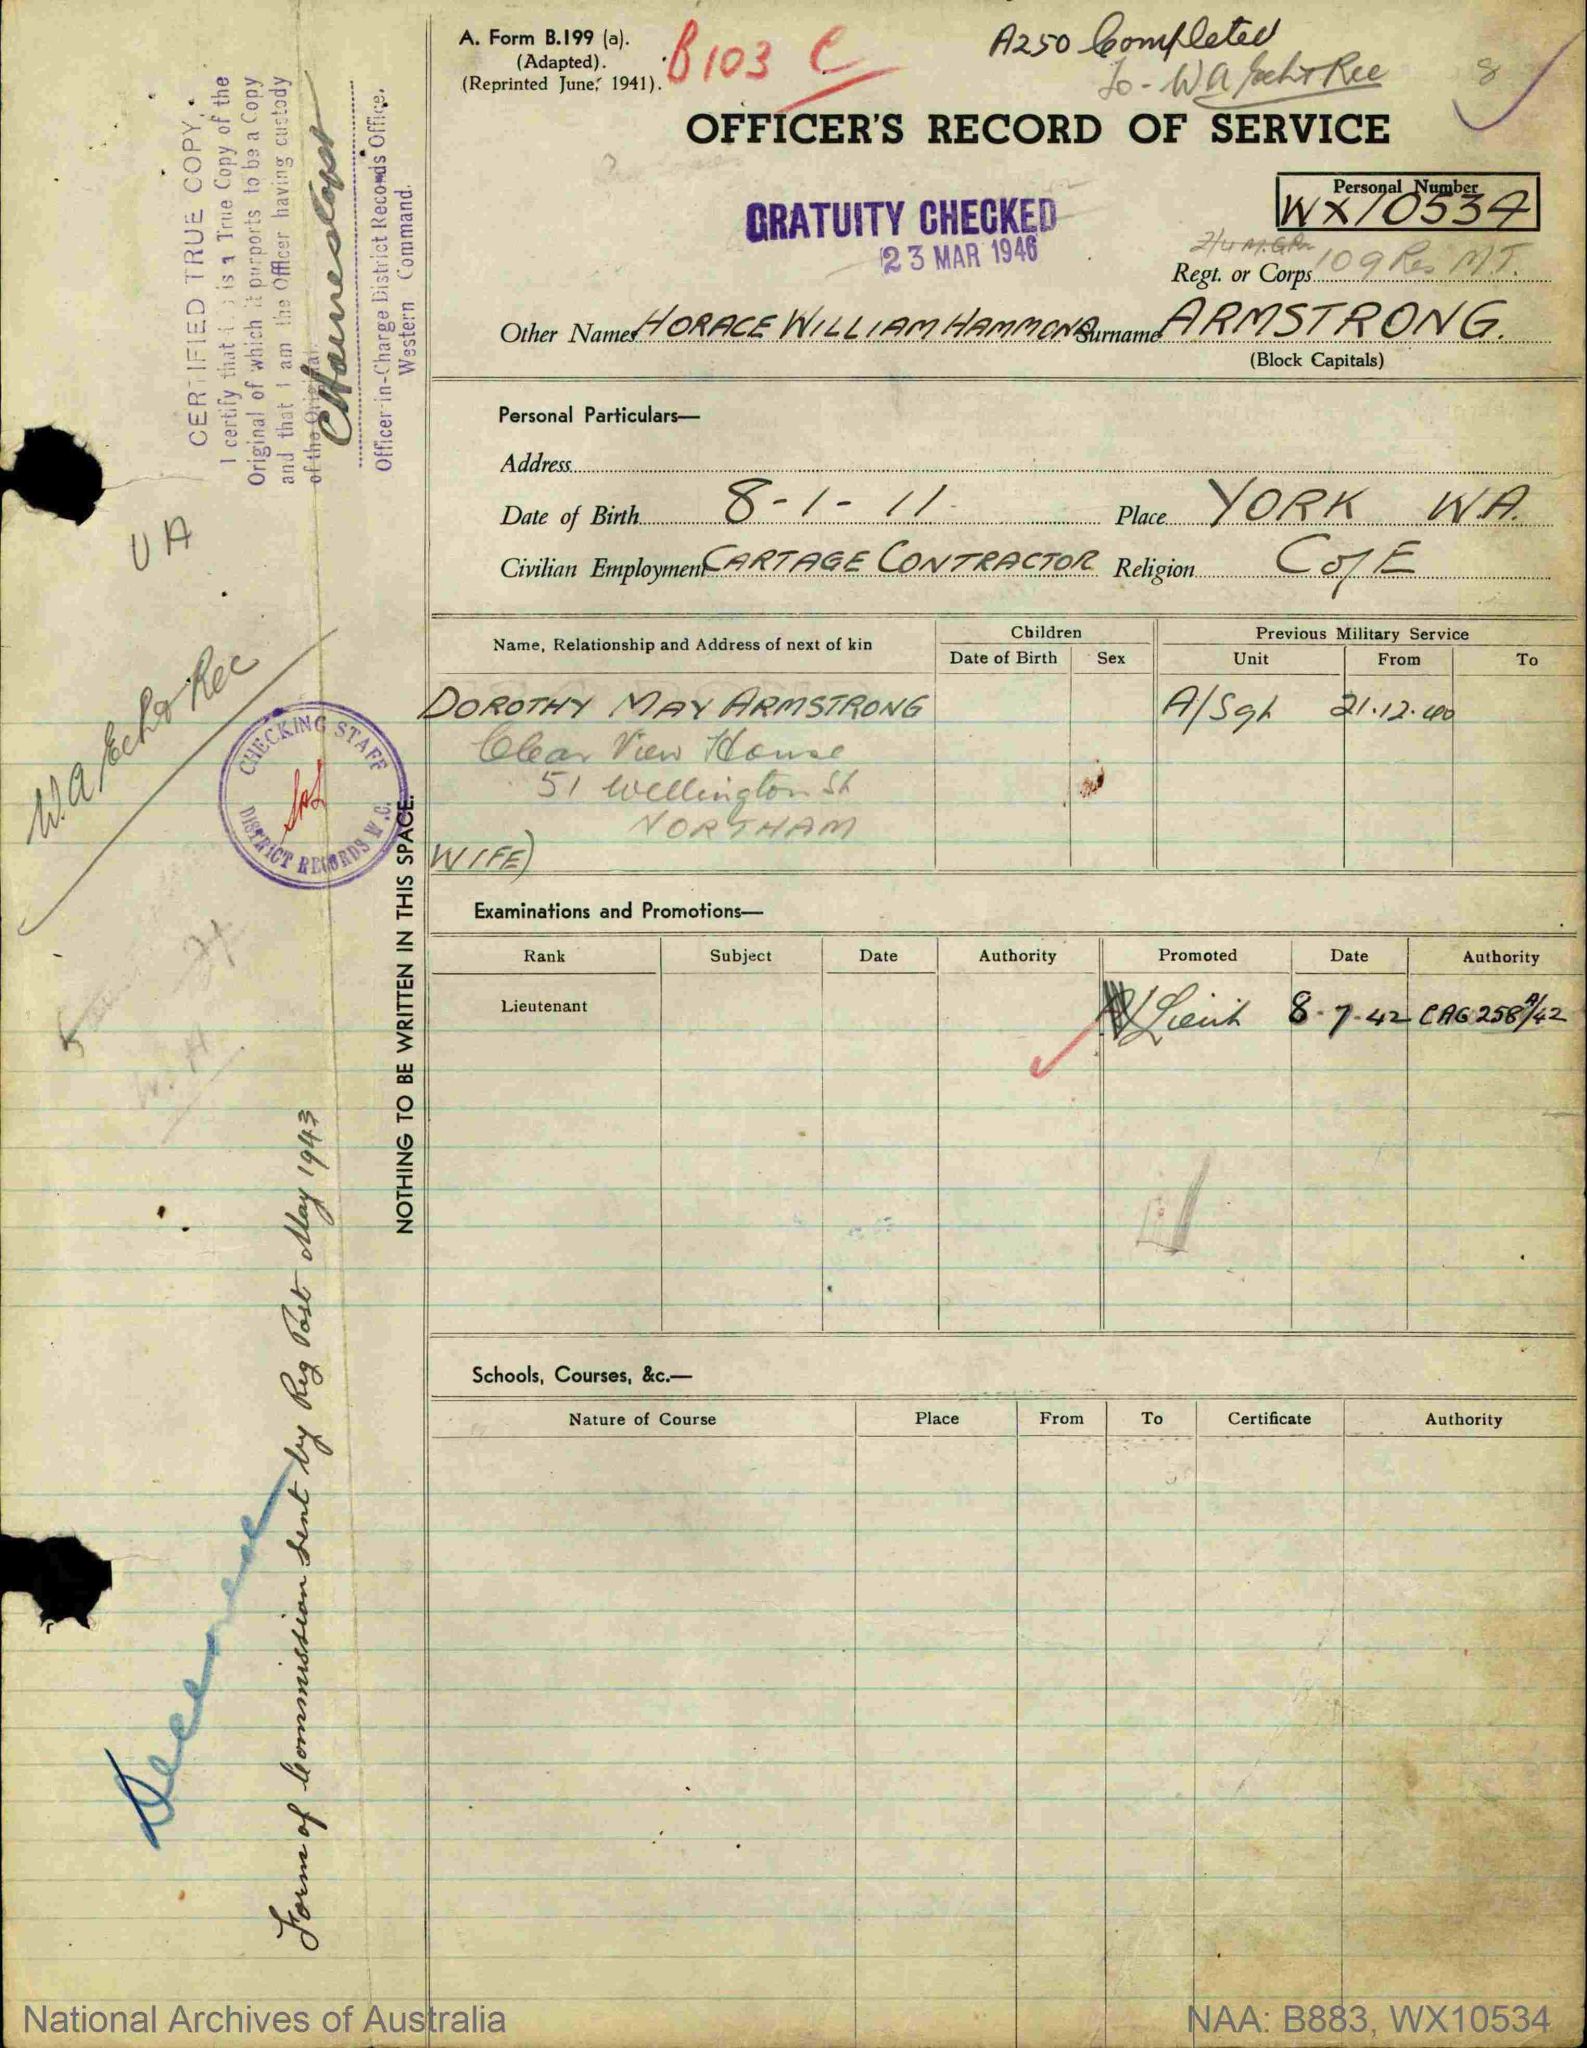 A. Form B.199 (a).
(Adapted).
(Reprinted June, 1941).
B103 C
A250 Completed
To - WA Ech & Rec
8
OFFICER'S RECORD OF SERVICE
GRATUITY CHECKED
23 MAR 1946
Personal Number
WX10534
Regt. or Corps 109 Res M.T.
Other Names HORACE WILLIAM HAMMOND Surname ARMSTRONG.
(Block Capitals)
Personal Particulars—
Address
Date of Birth 8-1-11. Place YORK W.A.
Civilian Employment CARTAGE CONTRACTOR Religion C of E
Name, Relationship and Address of next of kin Children Previous Military Service
Date of Birth Sex Unit From To
DOROTHY MAY ARMSTRONG A/Sgt 21.12.40
Clear View House
51 Wellington St
NORTHAM
WIFE)
Examinations and Promotions—
Rank Subject Date Authority Promoted Date Authority
Lieutenant Lieut 8-7-42 CAG 258A/42
Schools, Courses, &c.—
Nature of Course Place From To Certificate Authority
CERTIFIED TRUE COPY.
I certify that this is a True Copy of the
Original of which it purports to be a Copy
and that I am the Officer having custody
of the Original.
Officer-in-Charge District Records Office,
Western Command.
UA
W.A Ech & Rec
CHECKING STAFF
DISTRICT RECORDS W.C.
NOTHING TO BE WRITTEN IN THIS SPACE.
Form of Commission sent by Reg Post May 1943
National Archives of Australia
NAA: B883, WX10534